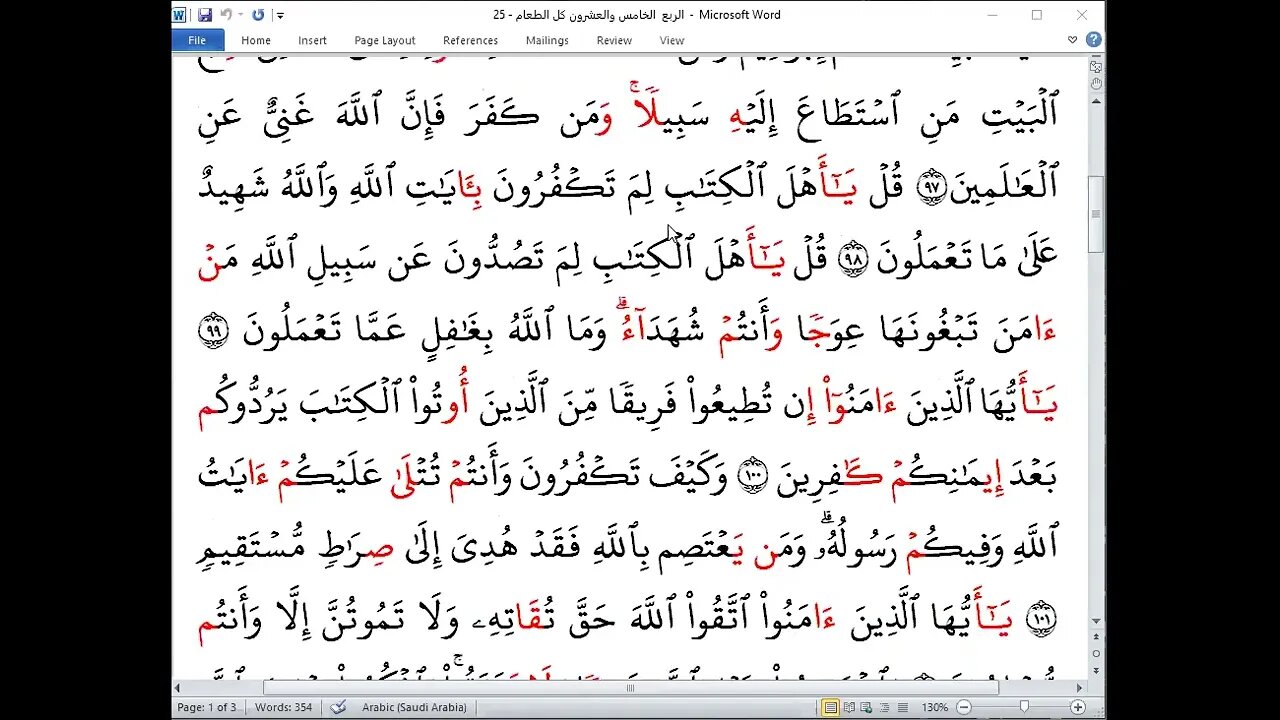 الربع الخامس والعشرون كل الطعام - 25 - Microsoft Word
File Home Insert Page Layout References Mailings Review View
ٱلۡبَيۡتِ مَنِ ٱسۡتَطَاعَ إِلَيۡهِ سَبِيلٗاۚ وَمَن كَفَرَ فَإِنَّ ٱللَّهَ غَنِيٌّ عَنِ
ٱلۡعَٰلَمِينَ ٩٧ قُلۡ يَٰٓأَهۡلَ ٱلۡكِتَٰبِ لِمَ تَكۡفُرُونَ بِـَٔايَٰتِ ٱللَّهِ وَٱللَّهُ شَهِيدٌ
عَلَىٰ مَا تَعۡمَلُونَ ٩٨ قُلۡ يَٰٓأَهۡلَ ٱلۡكِتَٰبِ لِمَ تَصُدُّونَ عَن سَبِيلِ ٱللَّهِ مَنۡ
ءَامَنَ تَبۡغُونَهَا عِوَجٗا وَأَنتُمۡ شُهَدَآءُۗ وَمَا ٱللَّهُ بِغَٰفِلٍ عَمَّا تَعۡمَلُونَ ٩٩
يَٰٓأَيُّهَا ٱلَّذِينَ ءَامَنُوٓاْ إِن تُطِيعُواْ فَرِيقٗا مِّنَ ٱلَّذِينَ أُوتُواْ ٱلۡكِتَٰبَ يَرُدُّوكُم
بَعۡدَ إِيمَٰنِكُمۡ كَٰفِرِينَ ١٠٠ وَكَيۡفَ تَكۡفُرُونَ وَأَنتُمۡ تُتۡلَىٰ عَلَيۡكُمۡ ءَايَٰتُ
ٱللَّهِ وَفِيكُمۡ رَسُولُهُۥۗ وَمَن يَعۡتَصِم بِٱللَّهِ فَقَدۡ هُدِيَ إِلَىٰ صِرَٰطٖ مُّسۡتَقِيمٖ
١٠١ يَٰٓأَيُّهَا ٱلَّذِينَ ءَامَنُواْ ٱتَّقُواْ ٱللَّهَ حَقَّ تُقَاتِهِۦ وَلَا تَمُوتُنَّ إِلَّا وَأَنتُم
Page: 1 of 3 Words: 354 Arabic (Saudi Arabia) 130%